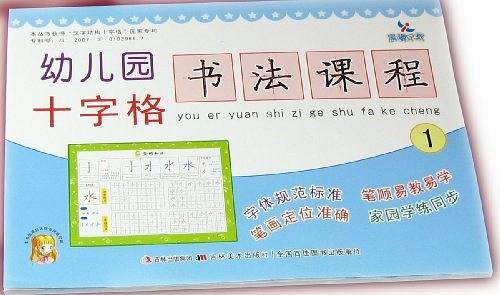 本丛书获得“汉字结构十字格”国家专利
幼儿园
十字格
书法课程
you er yuan shi zi ge shu fa ke cheng
1
水
字体规范标准 笔顺易教易学
笔画定位准确 家园学练同步
吉林出版集团 吉林美术出版社 | 全国百佳图书出版单位